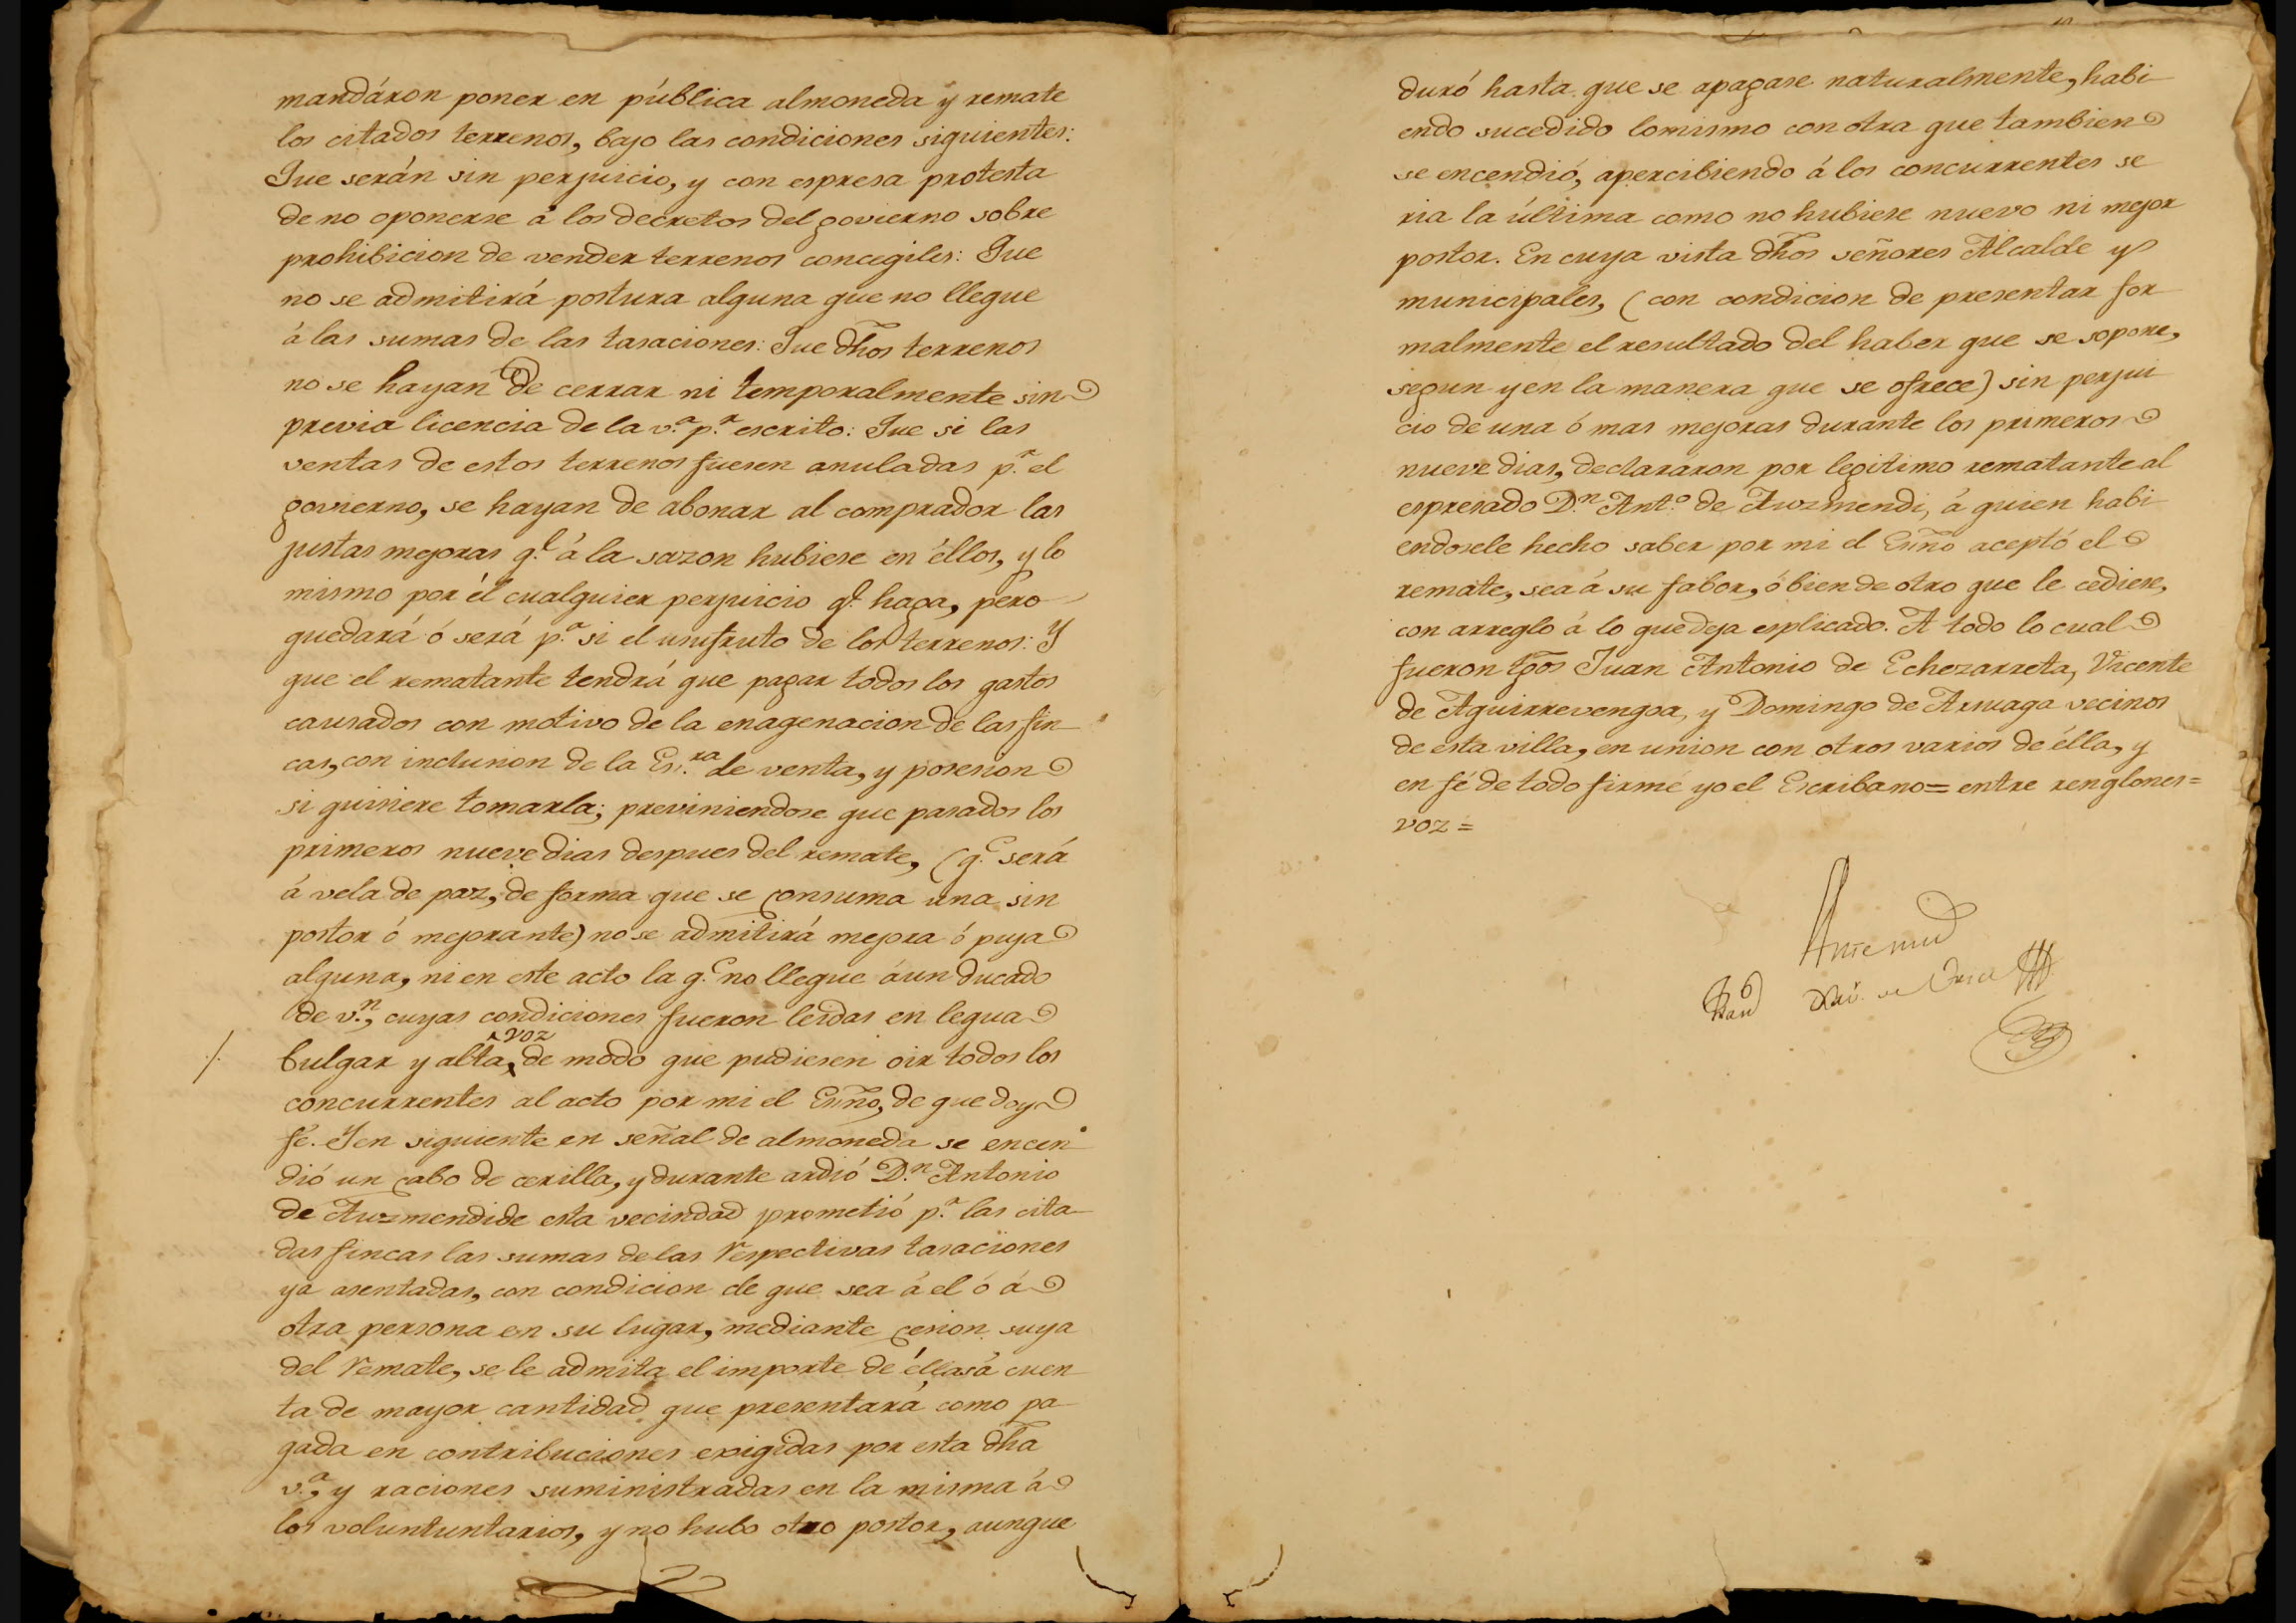 mandáron poner en pública almoneda y remate
los citados terrenos, bajo las condiciones siguientes:
Que serán sin perjuicio, y con espresa protesta
de no oponerse á los decretos del govierno sobre
prohibicion de vender terrenos concegiles: Que
no se admitirá postura alguna que no llegue
á las sumas de las tasaciones: Que dhos terrenos
no se hayan de cerrar ni temporalmente sin
previa licencia de la v.ª p.r escrito: Que si las
ventas de estos terrenos fuesen anuladas p.r el
govierno, se hayan de abonar al comprador las
justas mejoras q.e á la sazon hubiese en éllos, y lo
mismo por él cualquier perjuicio q.e haga, pero
quedará ó será p.ª si el usufruto de los terrenos: Y
que el rematante tendrá que pagar todos los gastos
causados con motivo de la enagenacion de las fin-
cas, con inclusion de la Es.ra de venta, y posesion
si quisiere tomarla; previniendose que pasados los
primeros nueve dias despues del remate, (q.e será
á vela de paz, de forma que se consuma una sin
postor ó mejorante) no se admitirá mejora ó puja
alguna, ni en este acto la q.e no llegue á un ducado
de v.n, cuyas condiciones fueron leidas en legua
voz
bulgar y alta, de modo que pudiesen oir todos los
concurrentes al acto por mi el Esñno, de que doy
fé. Y en siguiente en señal de almoneda se encen-
dió un cabo de cerilla, y durante ardió D.n Antonio
de Auzmendi de esta vecindad prometió p.r las cita-
das fincas las sumas de las respectivas tasaciones
ya asentadas, con condicion de que sea á el ó á
otra persona en su lugar, mediante cesion suya
del remate, se le admita el importe de éllas á cuen
ta de mayor cantidad que presentará como pa-
gada en contribuciones exigidas por esta dha
v.ª, y raciones suministradas en la misma á
los voluntuntarios, y no hubo otro postor, aunque
duró hasta que se apagase naturalmente, habi-
endo sucedido lo mismo con otra que tambien
se encendió, apercibiendo á los concurrentes se
ria la última como no hubiese nuevo ni mejor
postor. En cuya vista dhos señores Alcalde y
municipales, (con condicion de presentar for-
malmente el resultado del haber que se sopone,
segun y en la manera que se ofrece) sin perjui
cio de una ó mas mejoras durante los primeros
nueve dias, declararon por legitimo rematante al
espresado D.n Ant.o de Auzmendi, á quien habi-
endosele hecho saber por mi el Esñno aceptó el
remate, sea á su fabor, ó bien de otro que le cediese,
con arreglo á lo que deja esplicado. A todo lo cual
fueron tgõs Juan Antonio de Echezarreta, Vicente
de Aguirrevengoa, y Domingo de Arsuaga vecinos
de esta villa, en union con otros varios de élla, y
en fé de todo firmé yo el Escribano = entre renglones =
voz =
Ante mi